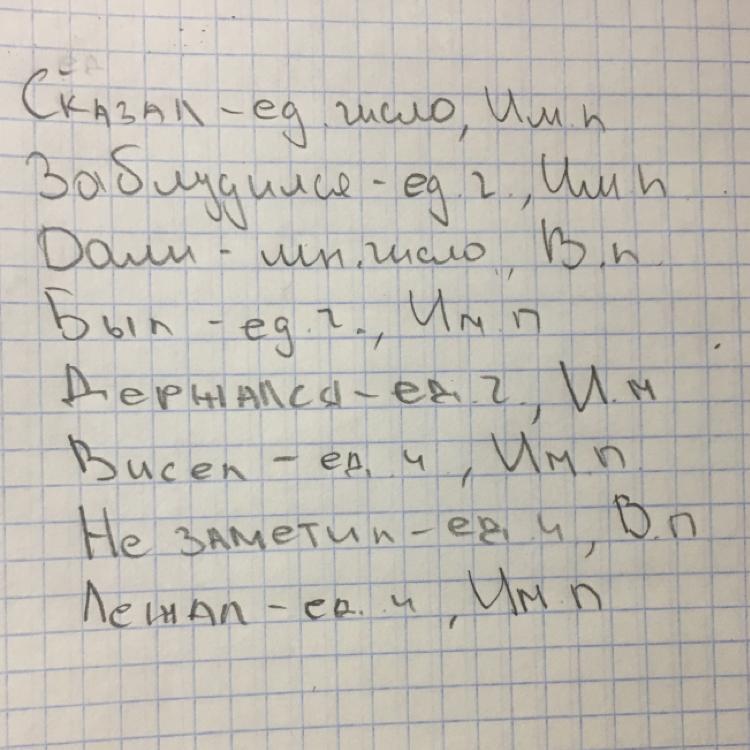 Сказал - ед. число, Им.п
Заблудился - ед. ч., Им п
Дали - мн. число, В.п
Был - ед. ч., Им. п
Держался - ед. ч., И.м
Висел - ед. ч, Им. п
Не заметил - ед. ч, В.п
Лежал - ед. ч, Им. п